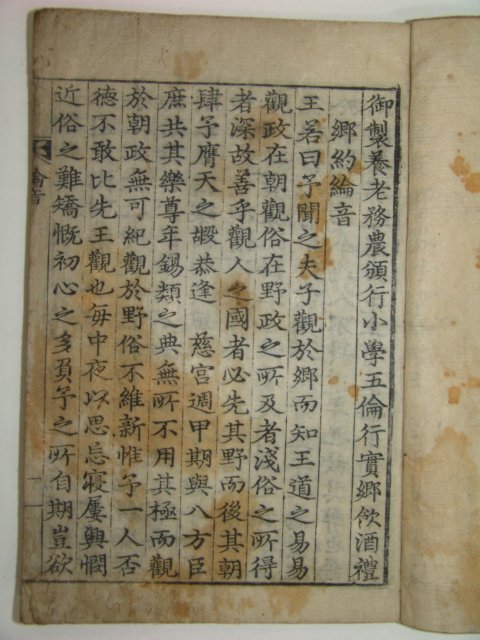 御製養老務農頒行小學五倫行實鄕飮酒禮
鄕約綸音
王若曰予聞之夫子觀於鄕而知王道之易易
觀政在朝觀俗在野政之所及者淺俗之所得
者深故善乎觀人之國者必先其野而後其朝
肆予膺天之嘏恭逢 慈宮週甲期與八方臣
庶共其樂尊年錫類之典無所不用其極而觀
於朝政無可紀觀於野俗不維新惟予一人否
德不敢比先王觀也每中夜以思忘寢屢興憫
近俗之難矯慨初心之多負予之所自期豈欲
綸音
一